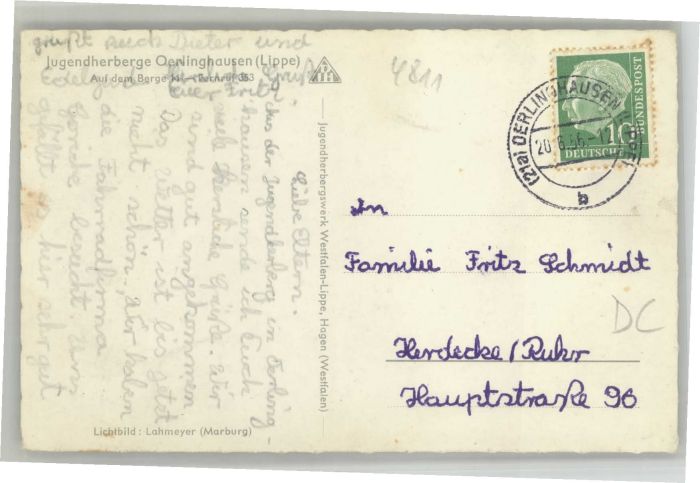 Jugendherberge Oerlinghausen (Lippe)
Auf dem Berge Fernruf 353
Liebe Eltern.
Aus der Jugendherberg in Oerling-
hausen sende ich Euch
viele Herzliche Grüße. Wir
sind gut angekommen
Das Wetter ist bis jetzt
nicht schön. Wir haben
die Fahrradfirma
besucht. Uns
gefällt es hier sehr gut
grüßt auch Dieter und
Euer Fritz
Lichtbild: Lahmeyer (Marburg)
Jugendherbergswerk Westfalen-Lippe, Hagen (Westfalen)
4811
DEUTSCHE BUNDESPOST
10
(21a) OERLINGHAUSEN
b
An
Familie Fritz Schmidt
Herdecke/Ruhr
Hauptstraße 96
DC